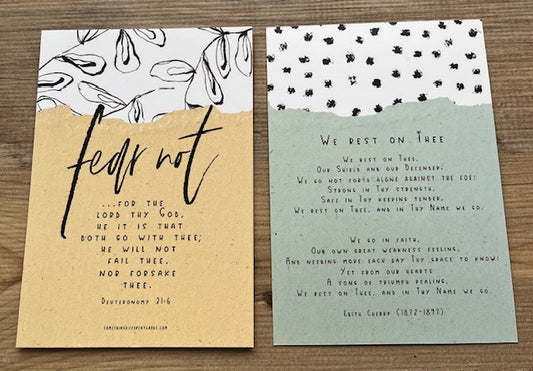 fear not
...FOR THE
LORD THY GOD,
HE IT IS THAT
DOTH GO WITH THEE;
HE WILL NOT
FAIL THEE,
NOR FORSAKE
THEE.
DEUTERONOMY 31:6
SOMETHINGDIFFERENTCARDS.COM
WE REST ON THEE
WE REST ON THEE,
OUR SHIELD AND OUR DEFENDER;
WE GO NOT FORTH ALONE AGAINST THE FOE;
STRONG IN THY STRENGTH,
SAFE IN THY KEEPING TENDER,
WE REST ON THEE, AND IN THY NAME WE GO.
WE GO IN FAITH,
OUR OWN GREAT WEAKNESS FEELING,
AND NEEDING MORE EACH DAY THY GRACE TO KNOW:
YET FROM OUR HEARTS
A SONG OF TRIUMPH PEALING,
WE REST ON THEE, AND IN THY NAME WE GO.
EDITH CHERRY (1872-1897)